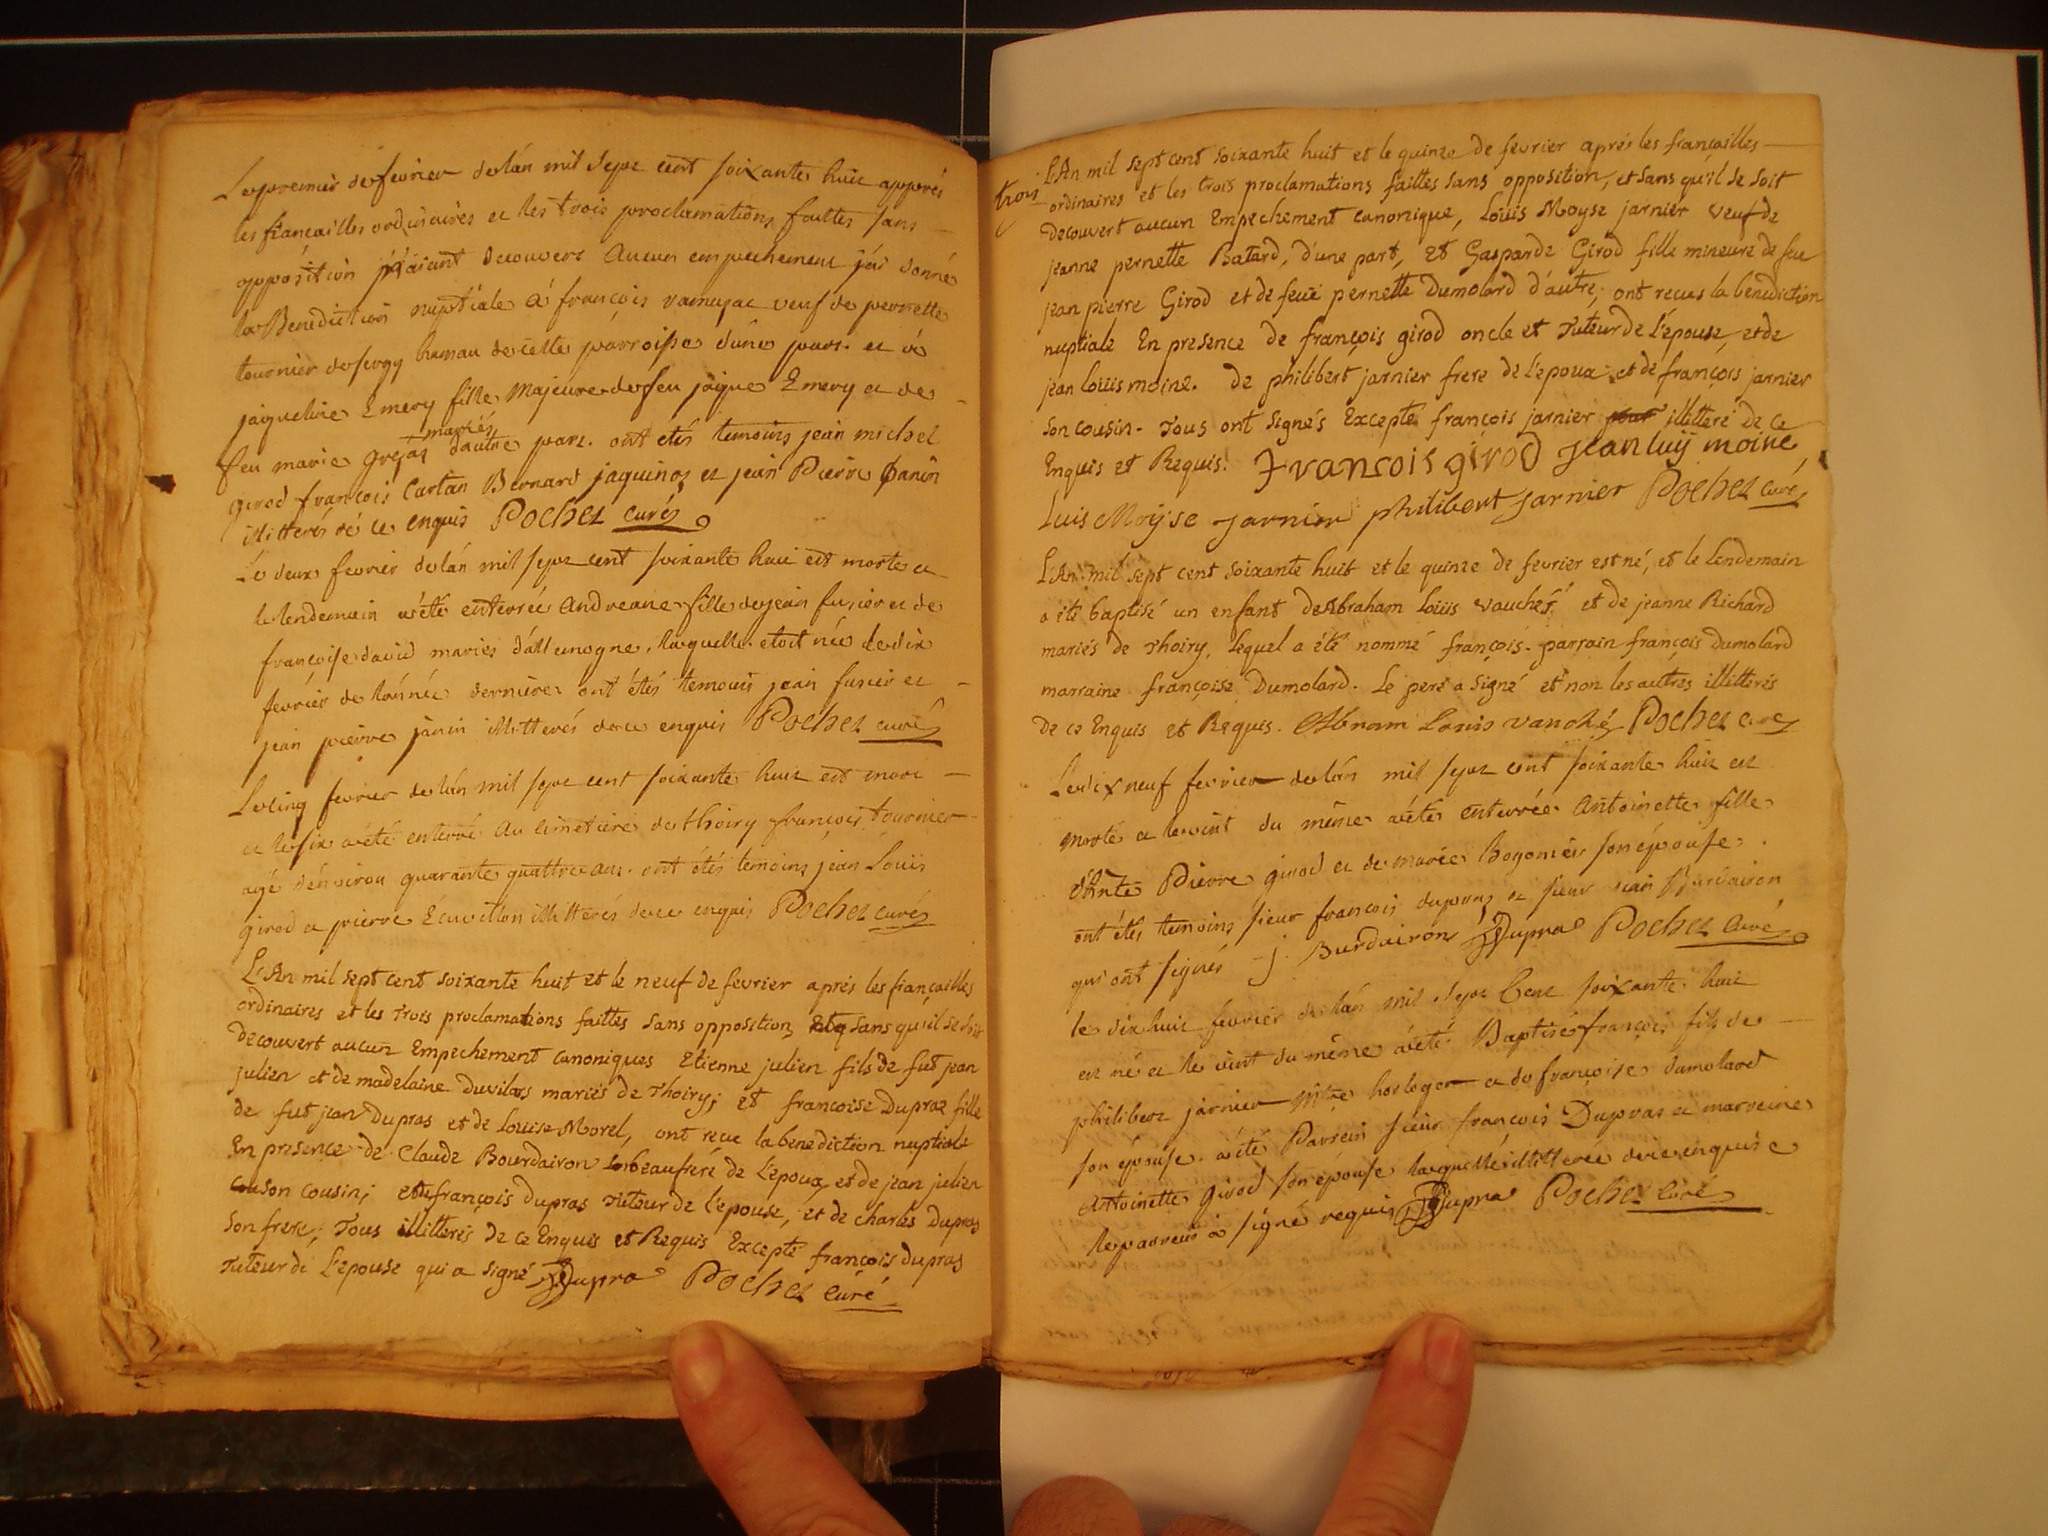 Le premier de fevrier de lán mil sept cent soixante huit apprés
les fiançailles ordinaires et les trois proclamations faittes sans
opposition n'aiant decouvert Aucun empechement j'ai donné
la Benediction nuptiale á françois ramujac veuf de pernette
tournier de sergy hamau de cette parroisse dúne part. et á
jaqueline Emery fille Majeure de feu jâque Emery et de
feu marie grejat mariés dautre part. ont étés temoins jean michel
girod françois Cartan Bernard jaquinot et jean Pierre Janin
illitterés de ce enquis Pochet curé
Le deux fevrier de lán mil sept cent soixante huit est morte et
le lendemain a été enterrée Andreane fille de jean fusier et de
françoise david mariés d'allemogne, laquelle etoit née le dix
fevrier de lánnée derniere ont étés temoins jean fusier et
jean pierre janin illitterés de ce enquis Pochet curé
Le cinq fevrier de lán mil sept cent soixante huit est mort
et le six a été enterré Au cimetiére de thoiry françois tournier
agé dénviron quarante quattre ans. ont étés temoins jean Louis
girod et pierre Ecuvillon illitterés de ce enquis Pochet curé
L'An mil sept cent soixante huit et le neuf de fevrier aprés les fiançailles
ordinaires et les trois proclamations faittes sans opposition sans qu'il se soit
decouvert aucun Empechement canoniques Etienne julien fils de fut jean
julien et de madelaine duvilars mariés de Thoiry; et francoise Dupraz fille
de fut jean Dupras et de Louise Morel, ont recue la benediction nuptiale
En presence de Claude Bourdairon beaufrére de l'epoux, et de jean julien
son cousin; et françois dupras Tuteur de l'epouse, et de charles Dupras
son frere; Tous illitterés de ce Enquis et Requis Excepté françois Dupras
Tuteur de L'epouse qui a signé Dupra Pochet Curé
trois
L'An mil sept cent soixante huit et le quinze de fevrier aprés les françailles
ordinaires et les trois proclamations faittes sans opposition, et sans qu'il se soit
decouvert aucun Empechement canonique, Loüis Moyse jarniér veuf de
jeanne pernette Batard, d'une part, et Gasparde Girod fille mineure de feu
jean pierre Girod et de feuë pernette Dumolard d'autre; ont recues la benediction
nuptiale En presence de françois girod oncle et Tuteur de L'épouse, et de
jean loüis moine. de philibert jarnier frere de L'epoux et de françois jarnier
son cousin. Tous ont signés Excepté françois jarnier illitteré de ce
Enquis et Requis. François girod jean luij moine
Luis Moÿse Jarnier philibert Jarnier Pochet curé
L'An mil sept cent soixante huit et le quinze de fevrier est né, et le lendemain
a été baptisé un enfant de Abraham Loüis vauchér et de jeanne Richard
mariés de Thoiry, Lequel a été nommé françois. parrain françois dumolard
marraine françoise Dumolard. Le peré a signé et non les autres illitterés
de ce Enquis et Requis. Abram Louis vauché Pochet curé
Le dix neuf fevrier de lán mil sept cent soixante huit est
morte et le vint du même a été enterrée Antoinette fille
d'Ante Pierre girod et de marie hogonier son épouse.
ont étés temoins sieur françois dupras et sieur jean Burdairon
qui ont signés j. Burdairon Dupra Pochet Curé
le dix huit fevrier de lán mil sept Cent soixante huit
est né et le vint du même a été Baptisé françois fils de
philibert járnier Mtre horloger et de françoise dumolard
son épouse. a été Parrein sieur françois Dupras et marreine
Antoinette girod son épouse laquelle illitterée de ce enquise
le parrein a signé requis Dupra Pochet Curé